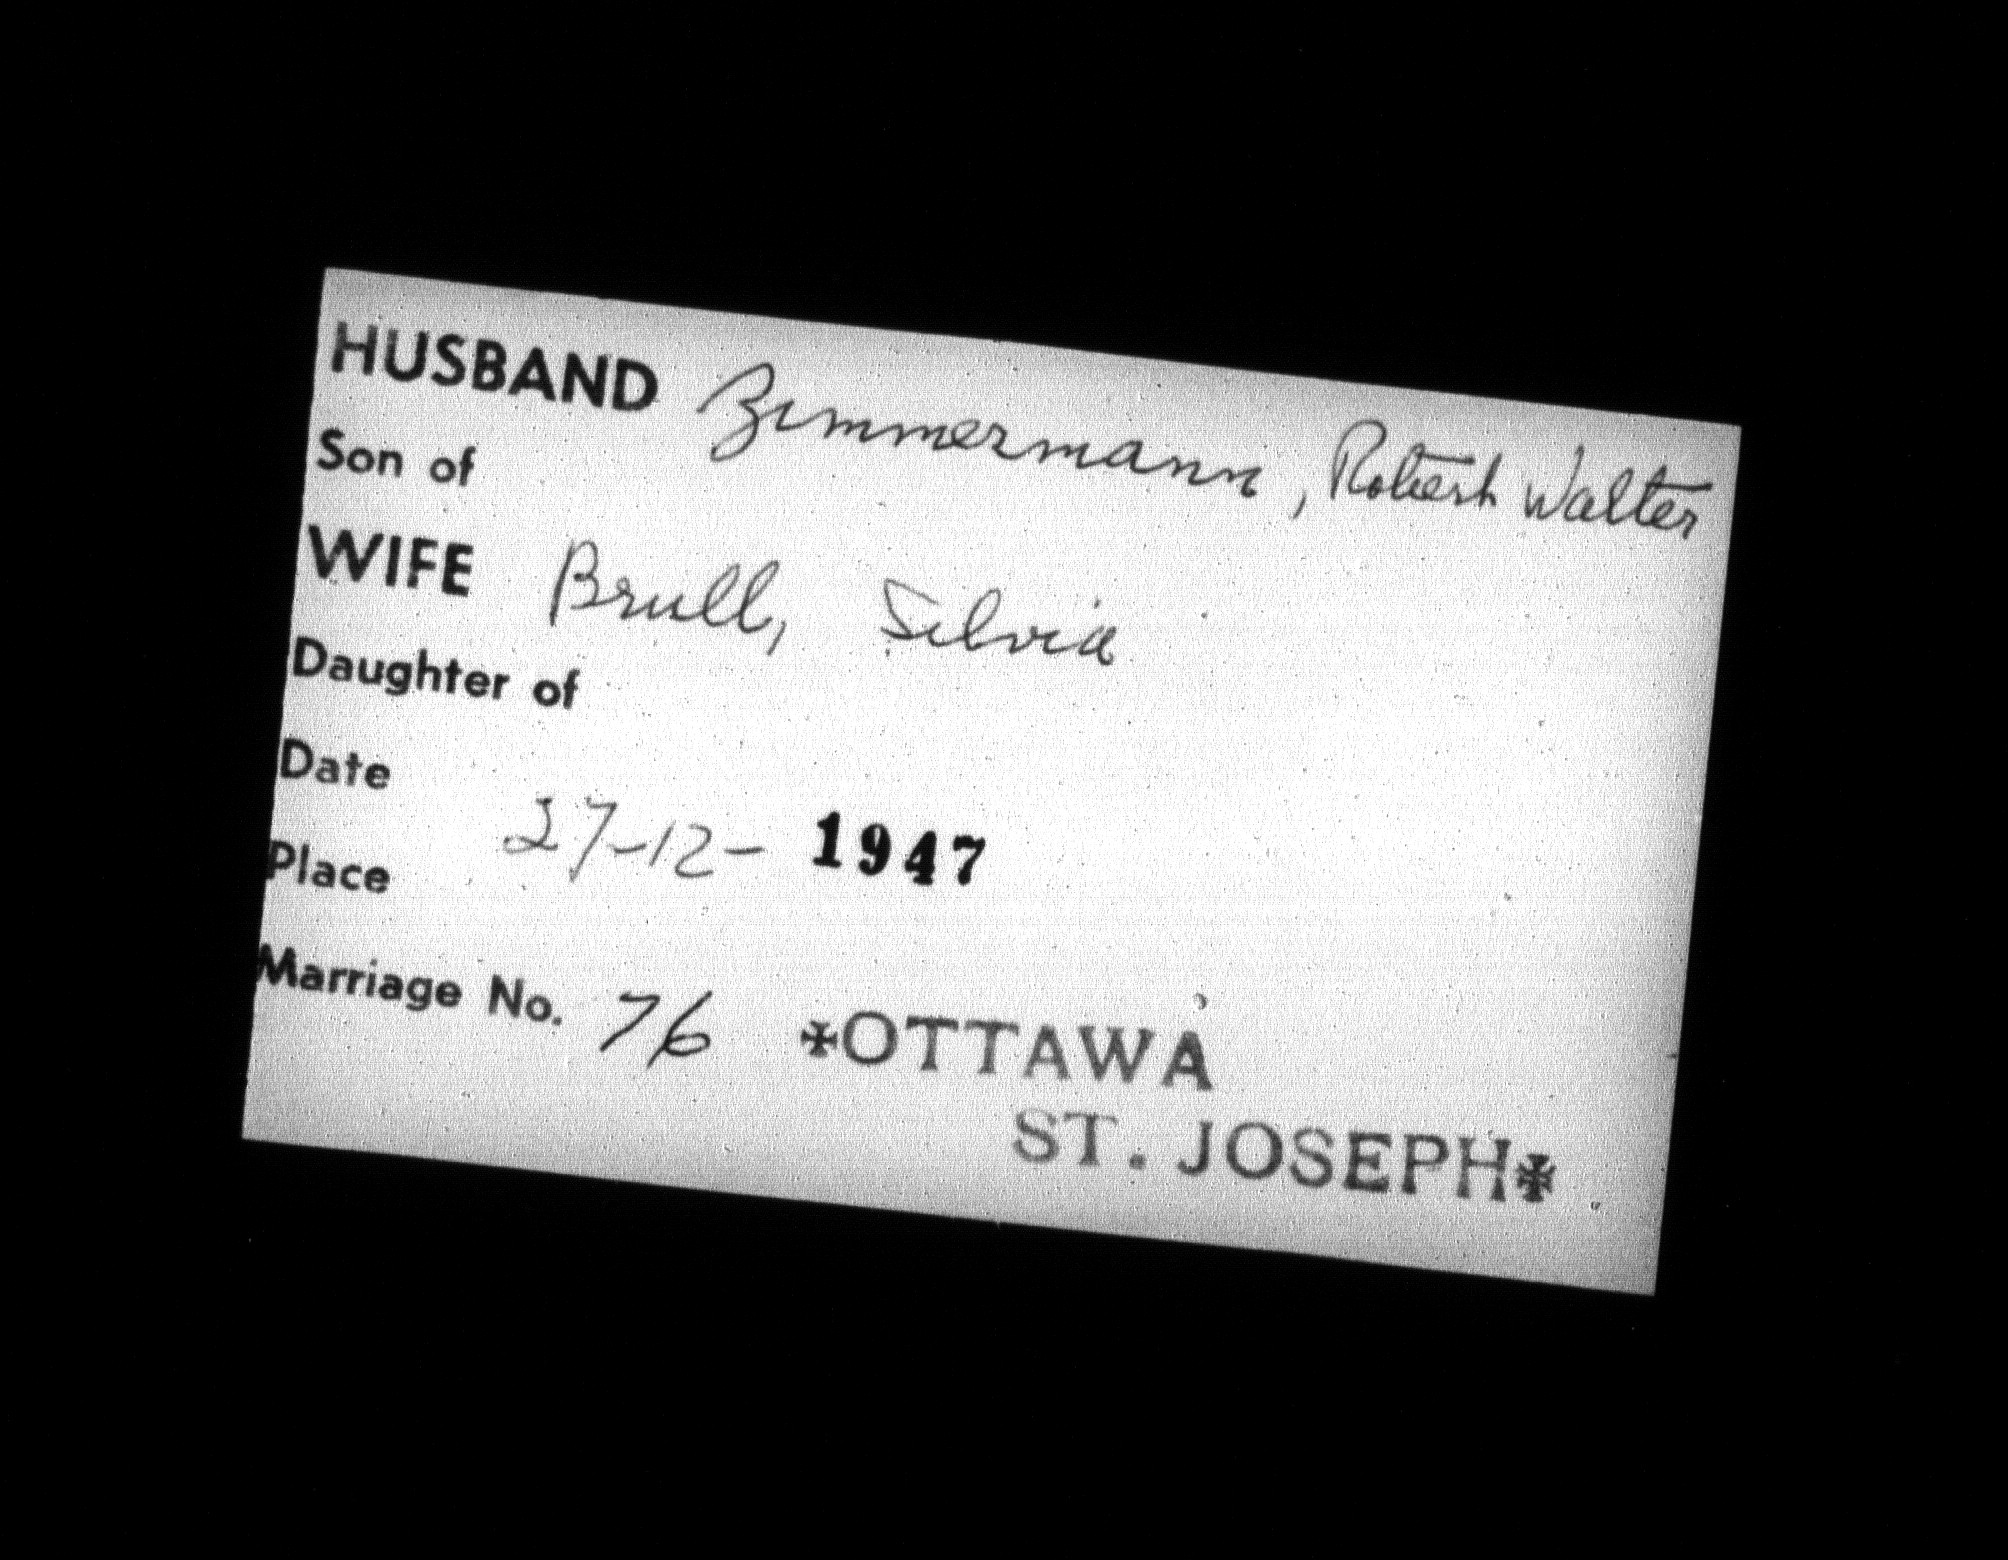 HUSBAND Zimmermann, Robert Walter
Son of
WIFE Brull, Silvia
Daughter of
Date 27-12-1947
Place
Marriage No. 76 ✠OTTAWA
ST. JOSEPH✠